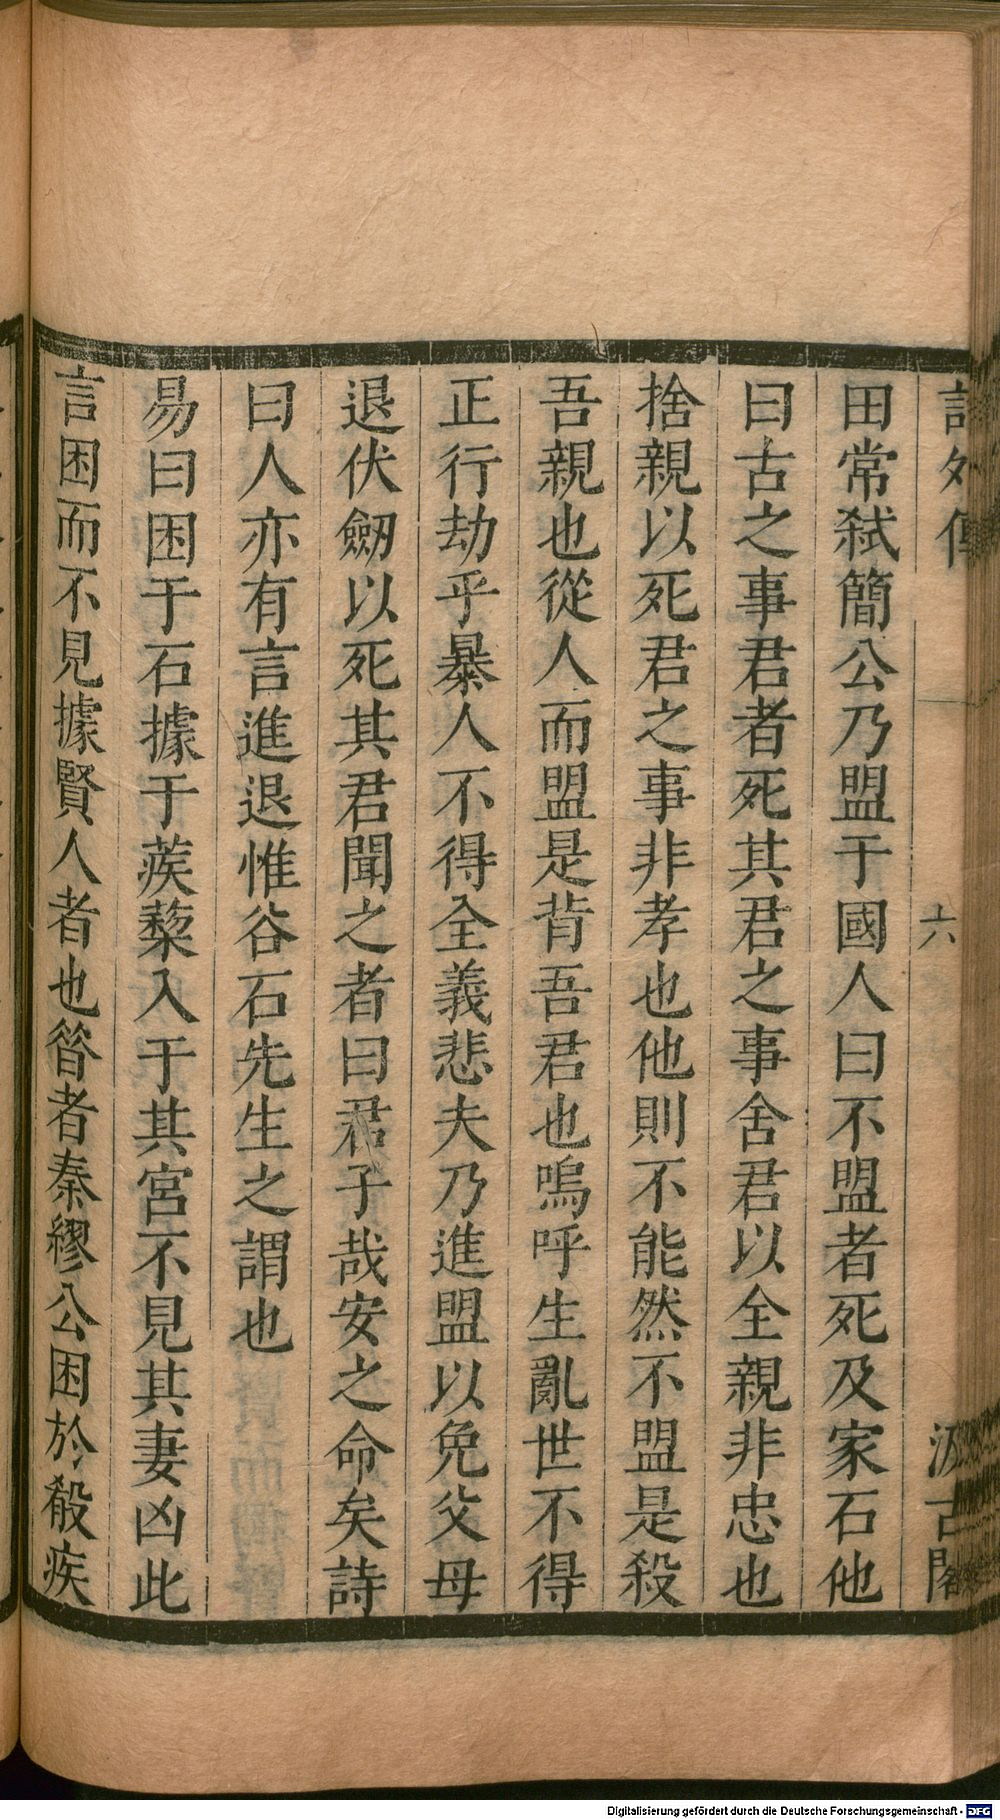 詩外傳 六 汲古閣
田常弒簡公乃盟于國人曰不盟者死及家石他
曰古之事君者死其君之事舍君以全親非忠也
捨親以死君之事非孝也他則不能然不盟是殺
吾親也從人而盟是背吾君也嗚呼生亂世不得
正行劫乎暴人不得全義悲夫乃進盟以免父母
退伏劒以死其君聞之者曰君子哉安之命矣詩
曰人亦有言進退惟谷石先生之謂也
易曰困于石據于蒺藜入于其宮不見其妻凶此
言困而不見據賢人者也昝者秦繆公困於殽疾
Digitalisierung gefördert durch die Deutsche Forschungsgemeinschaft - DFG